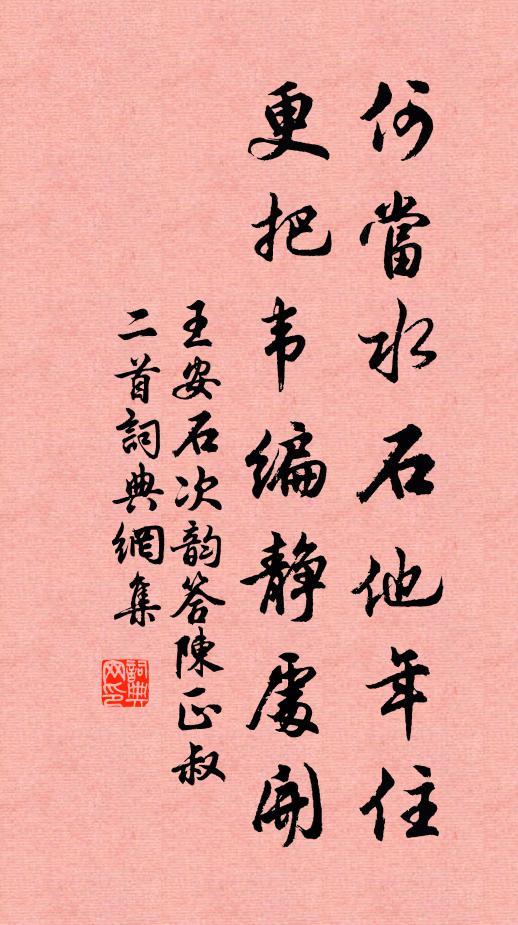 何當水石他年住
更把韦编静處開
王安石次韵答陳正叔
二首詞典網集
詞典網印